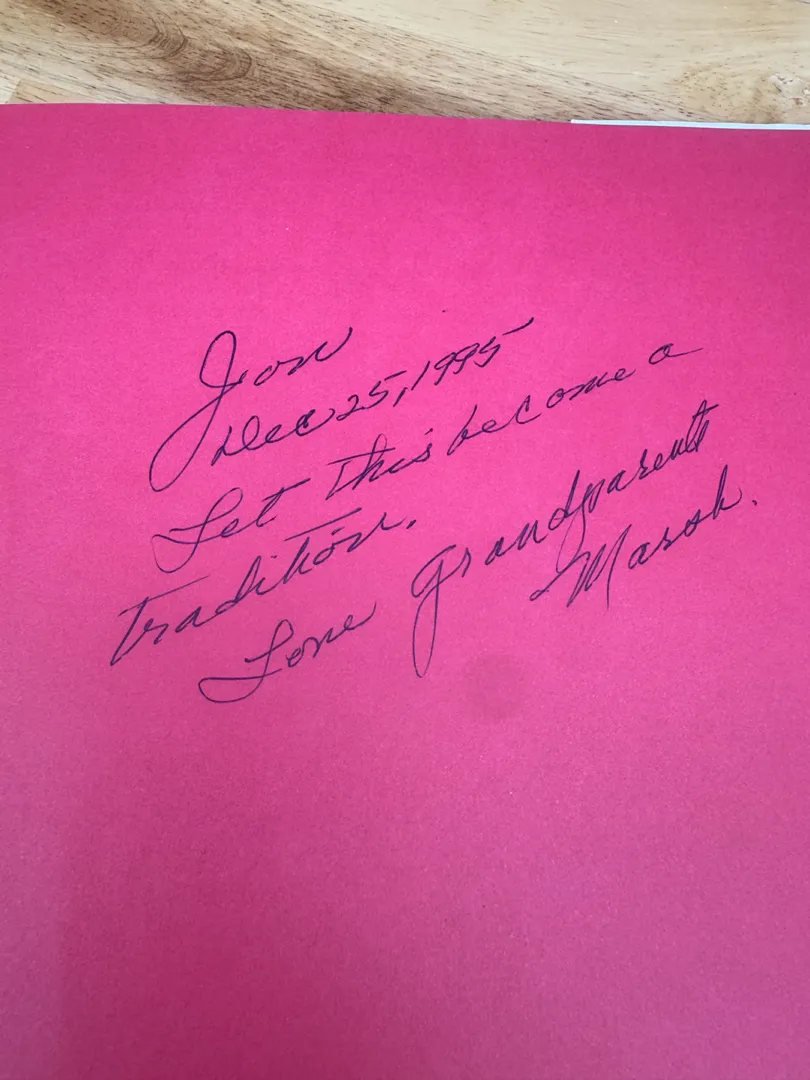 Jon
Dec 25, 1995
Let this become a
tradition.
Love Grandparents
Marsh.